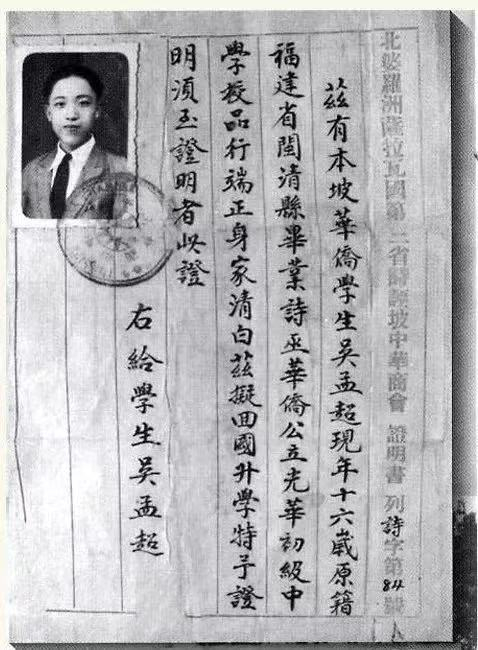 北婆羅洲薩拉瓦國第 省 坡中華商會 證明書 列詩字第84號
茲有本坡華僑學生吳孟超現年十六歲原籍
福建省閩清縣畢業詩巫華僑公立光華初級中
學校品行端正身家清白茲擬回國升學特予證
明須至證明者此證
右給學生吳孟超